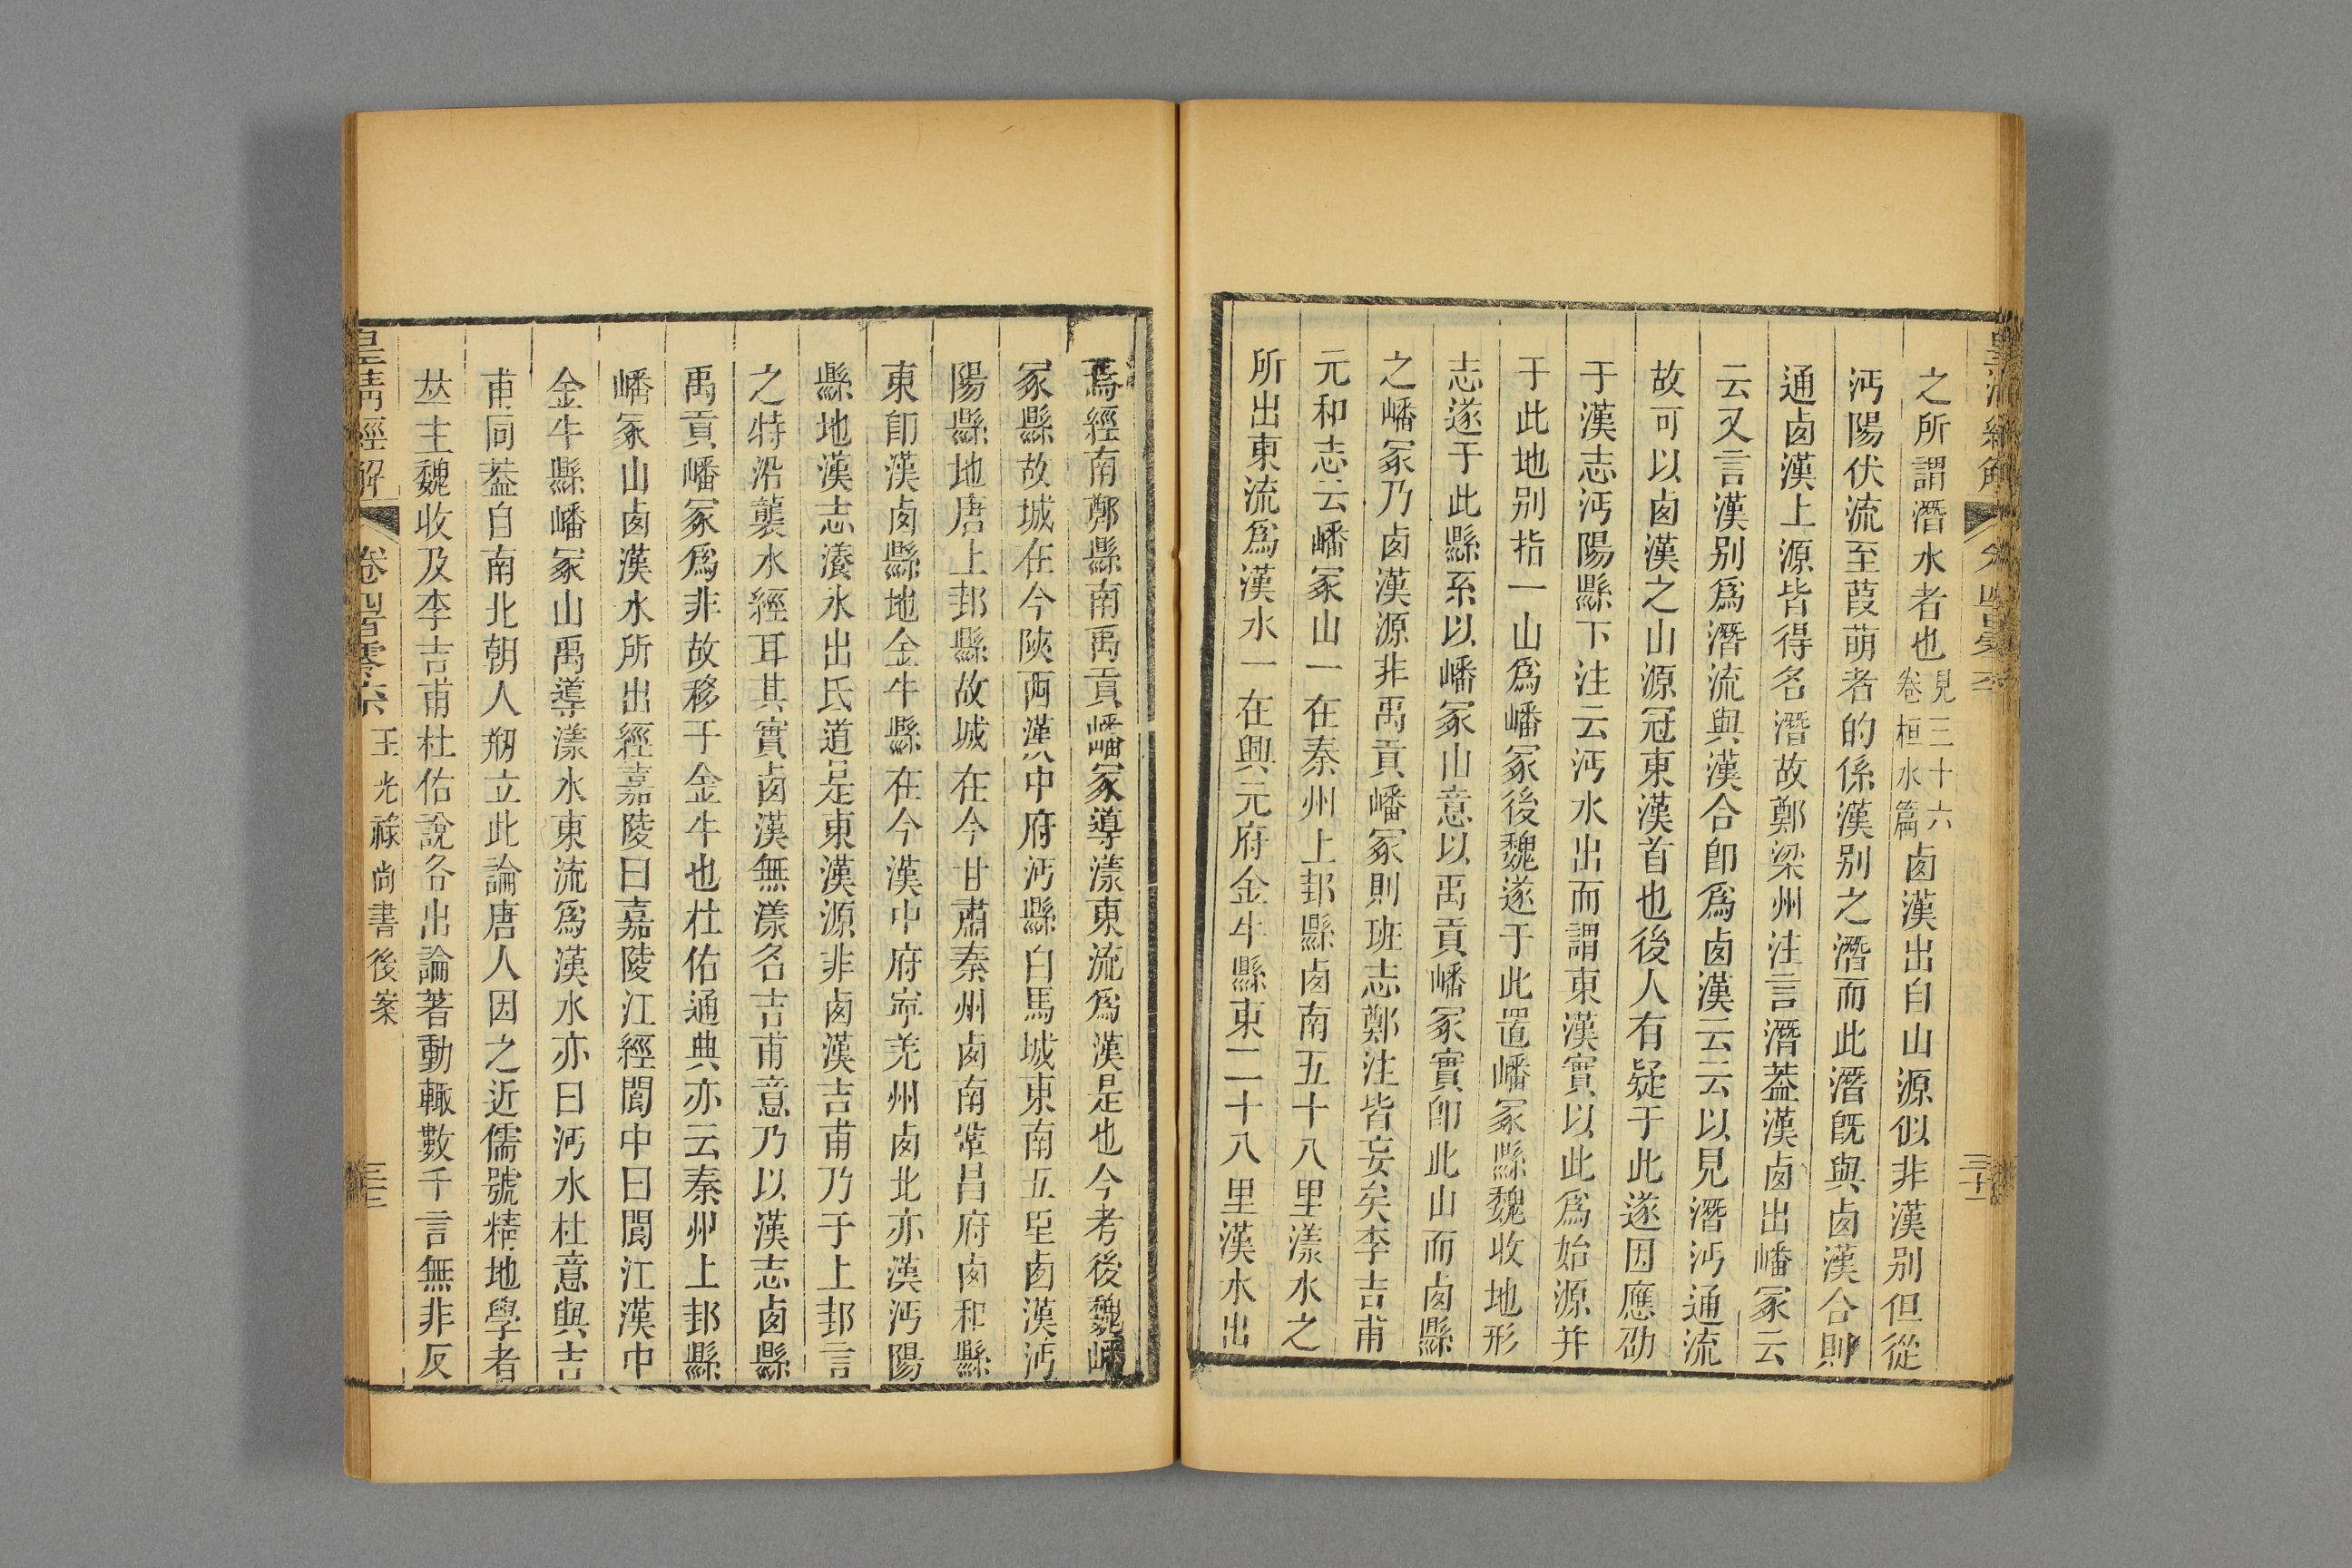 之所謂潛水者也見三十六卷桓水篇鹵漢出自山源似非漢别但從
沔陽伏流至葭萌者的係漢别之潛而此潛旣與鹵漢合則
通鹵漢上源皆得名潛故鄭梁州注言潛葢漢鹵出嶓冢云
云又言漢别爲潛流與漢合卽爲鹵漢云云以見潛沔通流
故可以鹵漢之山源冠東漢首也後人有疑于此遂因應劭
于漢志沔陽縣下注云沔水出而謂東漢實以此爲始源并
于此地别指一山爲嶓冢後魏遂于此置嶓冢縣魏收地形
志遂于此縣系以嶓冢山意以禹貢嶓冢實卽此山而鹵縣
之嶓冢乃鹵漢源非禹貢嶓冢則班志鄭注皆妄矣李吉甫
元和志云嶓冢山一在秦州上邽縣鹵南五十八里漾水之
所出東流爲漢水一在興元府金牛縣東二十八里漢水出
焉經南鄭縣南禹貢嶓冢導漾東流爲漢是也今考後魏嶓
冢縣故城在今陝西漢中府沔縣白馬城東南五里鹵漢沔
陽縣地唐上邽縣故城在今甘肅秦州鹵南鞏昌府鹵和縣
東卽漢鹵縣地金牛縣在今漢中府寧羌州鹵北亦漢沔陽
縣地漢志瀁水出氐道是東漢源非鹵漢吉甫乃于上邽言
之特沿襲水經耳其實鹵漢無漾名吉甫意乃以漢志鹵縣
禹貢嶓冢爲非故移于金牛也杜佑通典亦云秦州上邽縣
嶓冢山鹵漢水所出經嘉陵曰嘉陵江經閬中曰閬江漢中
金牛縣嶓冢山禹導漾水東流爲漢水亦曰沔水杜意與吉
甫同葢自南北朝人剏立此論唐人因之近儒號精地學者
竝主魏收及李吉甫杜佑說各出論著動輒數千言無非反
皇清經解 卷四百零六 王光祿尚書後案